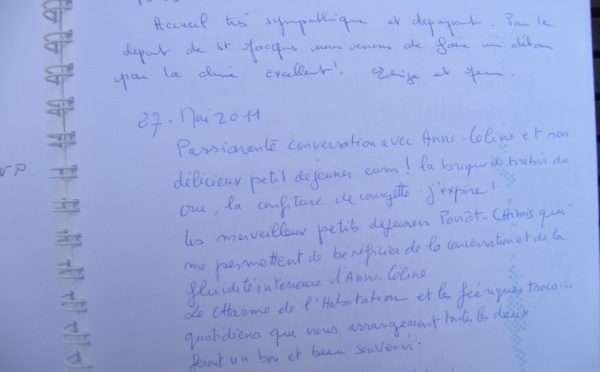 Accueil très sympathique et dépaysant. Pour le
départ de St Jacques nous venons de faire un détour
par la Excellent! et
27. Mai 2011
Passionante conversation avec Anne-Céline et son
délicieux petit déjeuner eum! la brique de brebis du
cru, la confiture de courgette. j'expire!
Les merveilleux petits déjeuners Ponot-Chinois qui
me permettent de bénéficier de la conversation et de la
fluidité interieure d'Anne-Céline
Le Charme de l'Habitation et les féeriques trocs...
quotidiens que nous arrangeament toutes les deux
feront un bon et beau souvenir.
VP